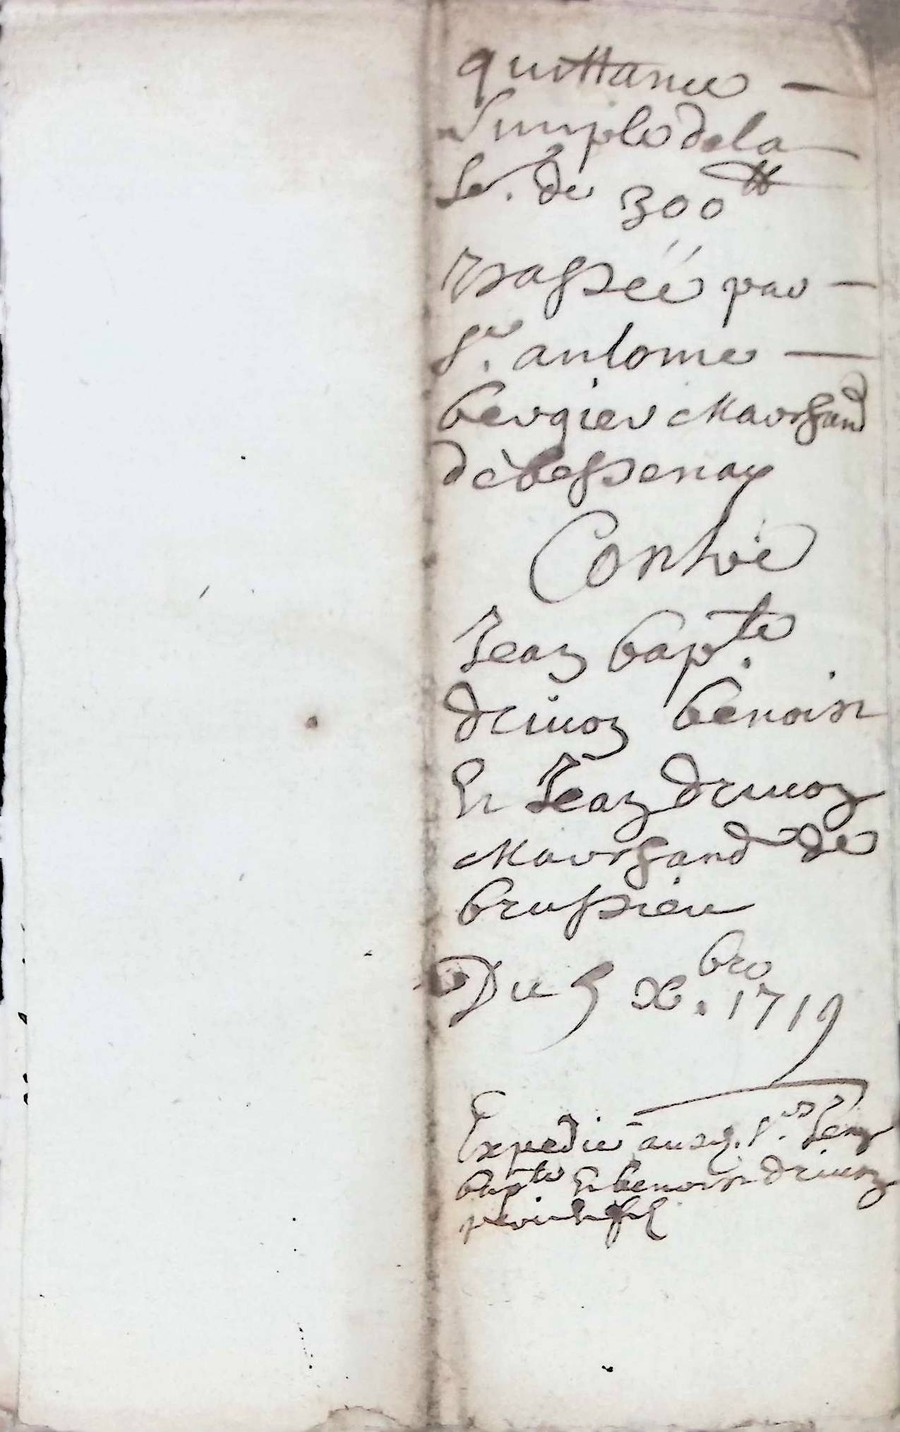 quittance —
Simple de la
Se. de 300tt
passée par —
Sr. antoine —
bergier Marchand
de bessenay
Contre
Jean bapte.
drivon benoist
Et Jean drivon
Marchand de
brussieu
Du 5 xbre. 1719
Expedié ausd. Srs. Jean
bapte Et benoist drivon